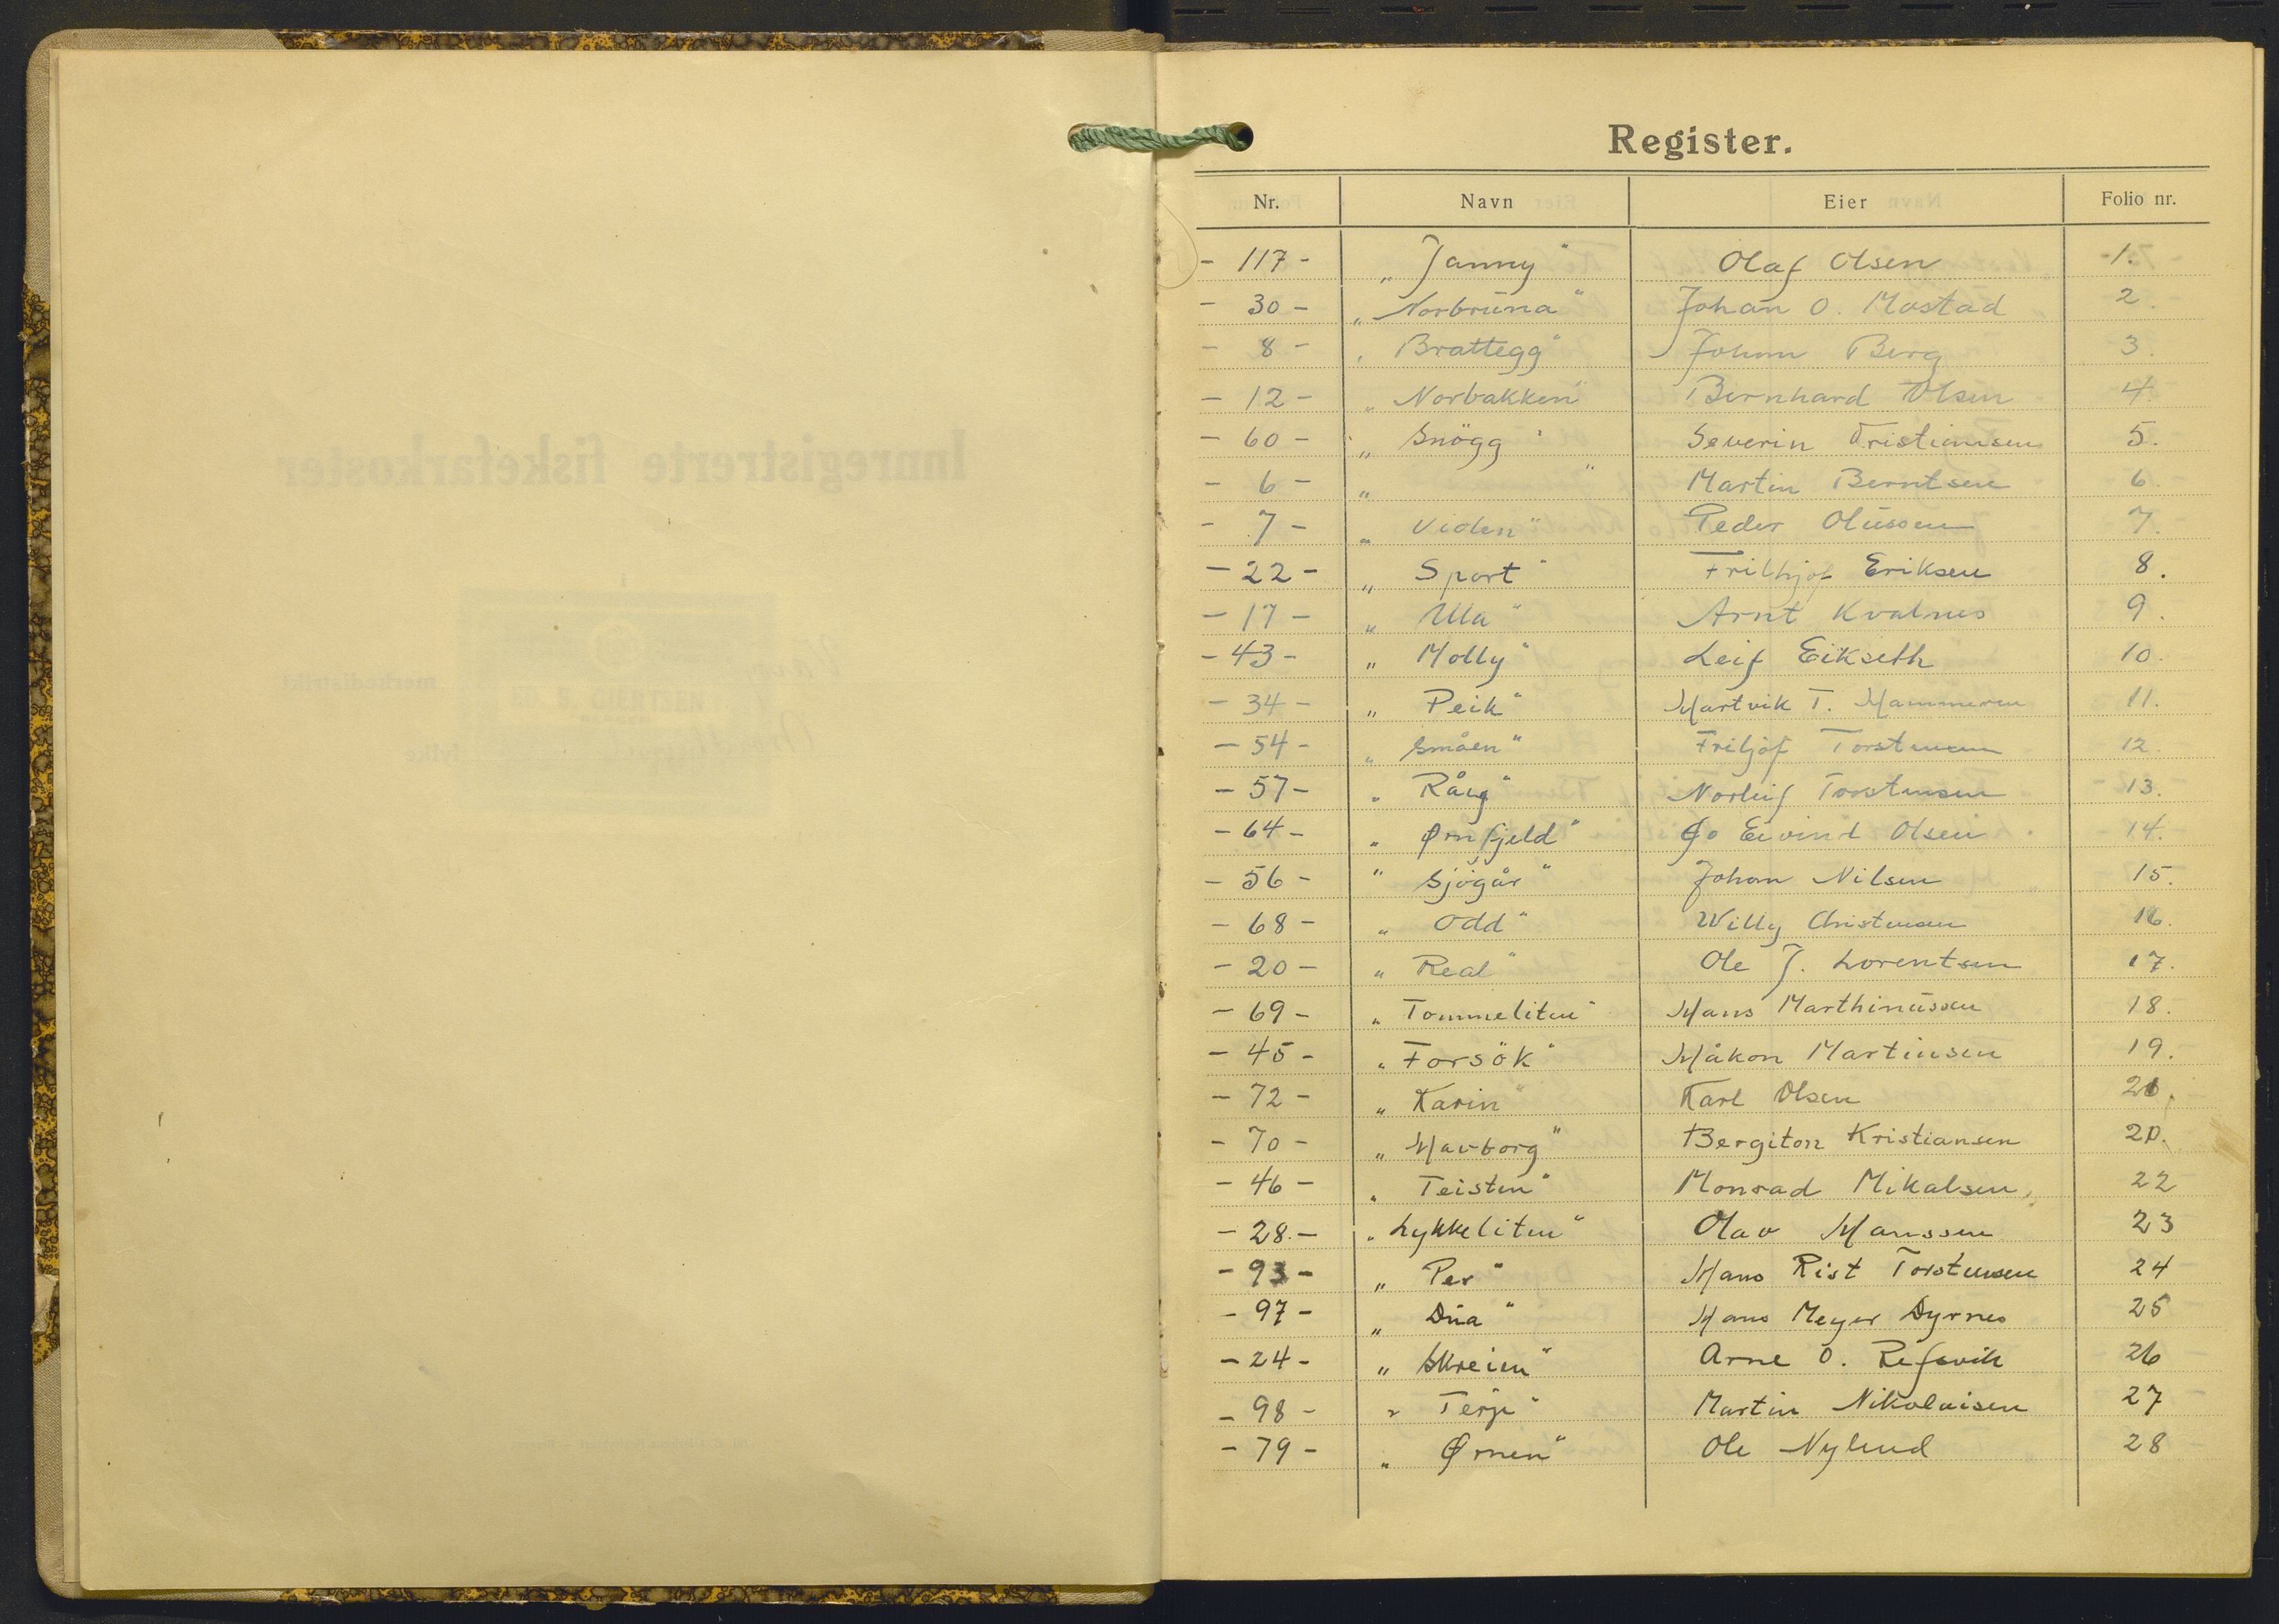 Register.
Nr. Navn Eier Folio nr.
- 117 - „Janny" Olaf Olsen 1.
- 30 - „Norbruna" Johan O. Mostad 2.
- 8 - „Brattegg" Johan Berg 3.
- 12 - „Norbakken" Bernhard Olsen 4.
- 60 - „Snögg" Severin Kristiansen 5.
- 6 - „ " Martin Berntsen 6.
- 7 - „Viden" Peder Olussen 7.
- 22 - „Sport" Frithjof Eriksen 8.
- 17 - „Ulla" Arnt Kvalnes 9.
- 43 - „Molly" Leif Eikseth 10.
- 34 - „Peik" Hartvik T. Hammeren 11.
- 54 - „Småen" Fritjof Torstensen 12.
- 57 - „Råeg" Norleif Torstensen 13.
- 64 - „Ørnfjeld" Eivind Olsen 14.
- 56 - „Sjögår" Johan Nilsen 15.
- 68 - „Odd" Willy Christensen 16.
- 20 - „Real" Ole J. Lorentsen 17.
- 69 - „Tommeliten" Hans Marthinussen 18.
- 45 - „Forsök" Håkon Martinsen 19.
- 72 - „Karin" Karl Olsen 21.
- 70 - „Havborg" Bergiton Kristiansen 20.
- 46 - „Teisten" Monrad Mikalsen 22
- 28. - „Lykkeliten" Olav Hanssen 23
- 93 - „Per" Hans Rist Torstensen 24
- 97 - „Dua" Hans Meyer Dyrnes 25
- 24 - „Skreien" Arne O. Refsvik 26
- 98 - „Terje" Martin Nikolaisen 27
- 79 - „Ørnen" Ole Nylund 28